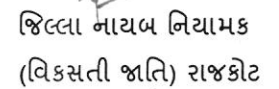 જિલ્લા નાયબ નિયામક
(વિકસતી જાતિ) રાજકોટ